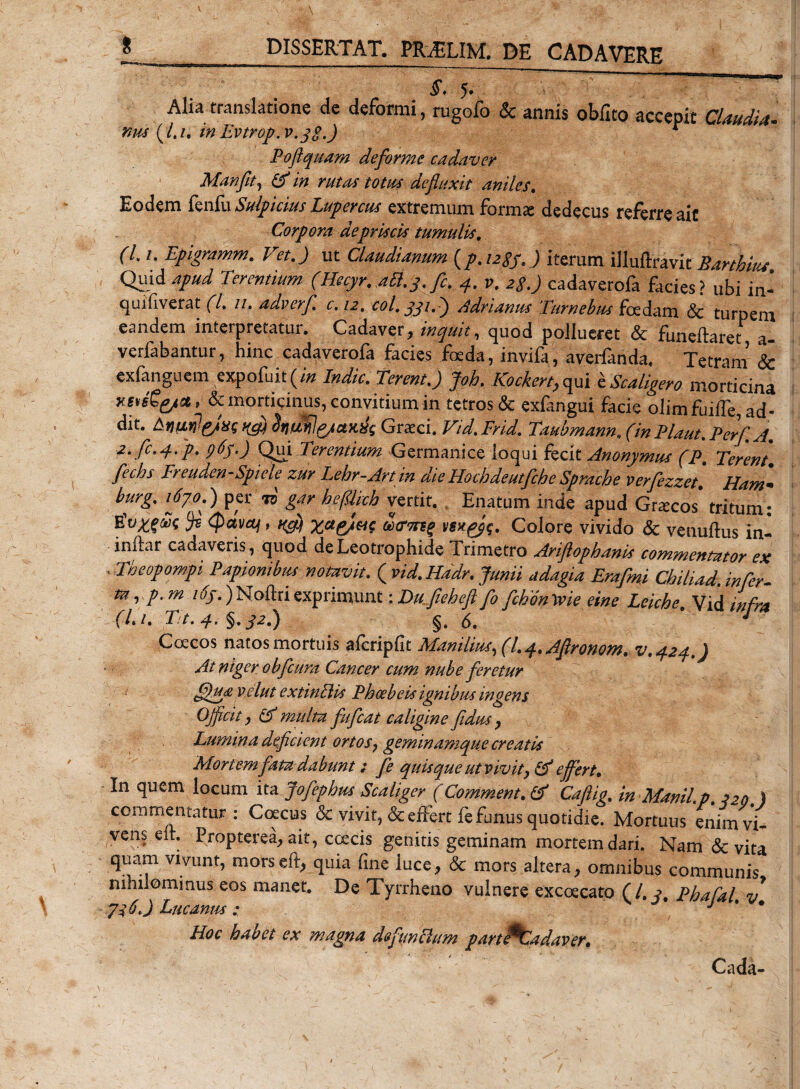 8 DISSERTAT. PRÆLIM. DE CADAVERE
§. 5.
Alia translatione de deformi, rugoſo & annis obſito accepit Claudia-
nus (l. 1. in Evtrop. v. 38.)
Poſtquam deforme cadaver
Manſit, & in rutas totus defluxit aniles.
Eodem ſenſu Sulpicius Lupercus extremum formæ dedecus referre ait
Corpora depriscis tumulis.
(l. 1. Epigramm. Vet.) ut Claudianum (p. 1285.) iterum illuſtravit Barthius.
Quid apud Terentium (Hecyr. act. 3. ſc. 4. v. 28.) cadaveroſa facies? ubi in-
quiſiverat (l. 11. adverſ. c. 12. col. 331.) Adrianus Turnebus fœdam & turpem
eandem interpretatur. Cadaver, inquit, quod pollueret & funeſtaret, a-
verſabantur, hinc cadaveroſa facies fœda, inviſa, averſanda. Tetram &
exſanguem expoſuit (in Indic. Terent.) Joh. Kockert, qui è Scaligero morticina
& morticinus, convitium in tetros & exſangui facie olim fuiſſe, ad-
dit. Græci. Vid. Frid. Taubmann. (in Plaut. Perſ. A.
2. ſc. 4. p. 965.) Qui Terentium Germanice loqui fecit Anonymus (P. Terent.
ſechs Freuden-Spiele zur Lehr-Art in die Hochdeutſche Sprache verſezzet. Ham-
burg. 1670.) per τὸ gar heßlich vertit. Enatum inde apud Græcos tritum:
Colore vivido & venuſtus in-
inſtar cadaveris, quod de Leotrophide Trimetro Ariſtophanis commentator ex
Theopompi Papionibus notavit. (vid. Hadr. Junii adagia Eraſmi Chiliad. inſer-
ta, p. m 165.) Noſtri exprimunt: Du ſieheſt ſo ſchön wie eine Leiche. Vid infra
(l. 1. Tt. 4. §. 32.) §. 6.
Cœcos natos mortuis aſcripſit Manilius, (l. 4. Aſtronom. v. 424.)
At niger obſcura Cancer cum nube feretur
Quæ velut extinctis Phœbeis ignibus ingens
Officit, & multa fuſcat caligine ſidus,
Lumina deficient ortos, geminamque creatis
Mortem fata dabunt: ſe quisque ut vivit, & effert.
In quem locum ita Joſephus Scaliger (Comment. & Caſtig. in Manil. p. 329.)
commentatur: Cœcus & vivit, & effert ſe funus quotidie. Mortuus enim vi-
vens eſt. Propterea, ait, cœcis genitis geminam mortem dari. Nam & vita
quam vivunt, mors eſt, quia ſine luce, & mors altera, omnibus communis,
nihilominus eos manet. De Tyrrheno vulnere excœcato (l. 3. Phaſal. v.
736.) Lucanus:
Hoc habet ex magna defunctum parte Cadaver.
Cada-